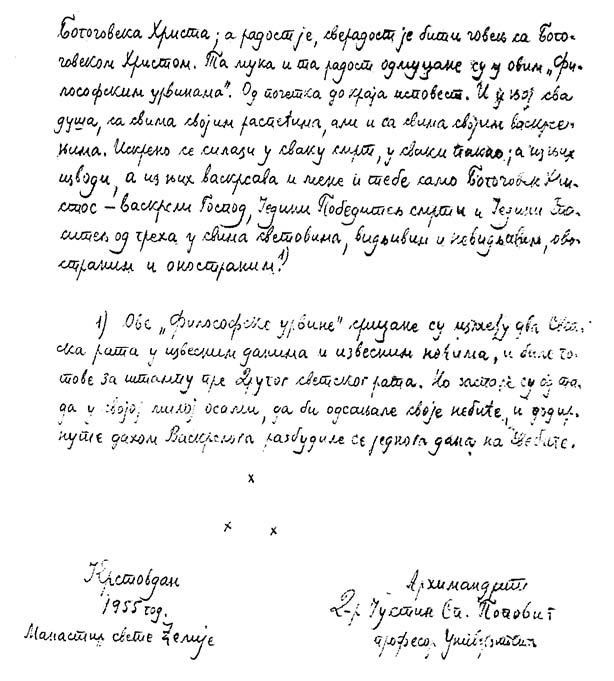 Богочовека Христа; а радост је, сверадост је бити човек са Бого-
човеком Христом. Та мука и та радост одјецане су у овим „Фи-
лософским урвинама". Од почетка до краја исповест. И у њој сва
душа, са свима својим распећима, али и са свима својим васкрсе-
њима. Искрено се силази у сваку смрт, у сваки пакао; а из њих
изводи, а из њих васкрсава и мене и тебе само Богочовек Хри-
стос – Васкрсли Господ, Једини Победитељ смрти и Једини Спа-
ситељ од греха у свима световима, видљивим и невидљивим, ово-
страним и оностраним.¹⁾
1) Ове „Философске урвине" јецане су између два Свет-
ска рата у извесним данима и извесним ноћима, и биле го-
тове за штампу пре Другог светског рата. Но заспале су од та-
да у својој милој осами, да би одсањале своје небиће, и додир-
нуте дахом Васкрслога разбудиле се једнога дана на свебиће.
x
x x
Крстовдан
1955 год.
Манастир свете Ћелије
Архимандрит
Д-р Јустин Сп. Поповић
професор Универзитета